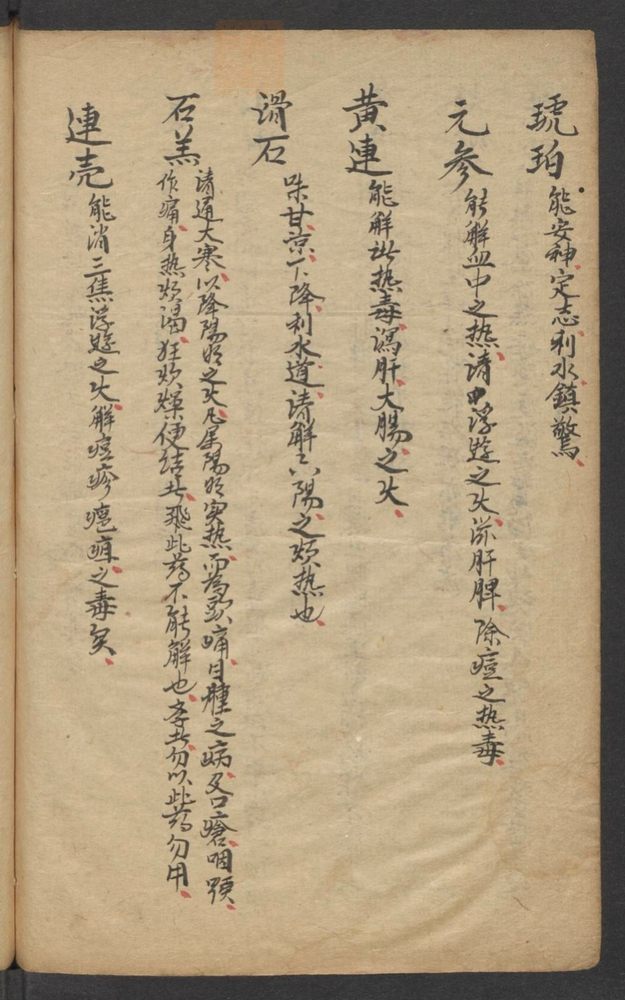 琥珀 能安神定志利水鎮驚
元参 能解血中之热清中浮遊之火滋肝脾除痘之热毒
黄連 能解此热毒瀉肝大腸之火
滑石 味甘凉下降利水道清解六陽之烦热也
石羔 清通大寒以降陽明之火凡属陽明实热而為头痛目腫之病及口瘡咽頸
作痛身热烦渴狂烦燥便結者飛此药不能解也孝者勿以此药勿用
連壳 能消三焦浮遊之火解痘疹瘡疽之毒矣